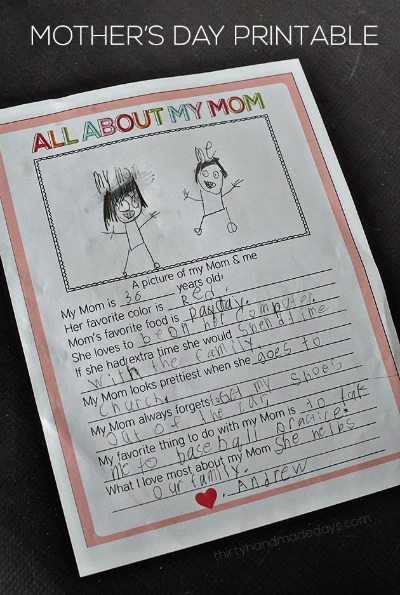 MOTHER'S DAY PRINTABLE
ALL ABOUT MY MOM
my mom
me
A picture of my Mom & me
My Mom is 36 years old!
Her favorite color is Red.
Mom's favorite food is payday.
She loves to be on her computer.
If she had extra time she would Spend time
with the family
My Mom looks prettiest when she goes to
church.
My Mom always forgets to get my shoes
out of the car.
My favorite thing to do with my Mom is to tak
me to baseball practice.
What I love most about my Mom She helps
our family.
Andrew
thirtyhandmadedays.com